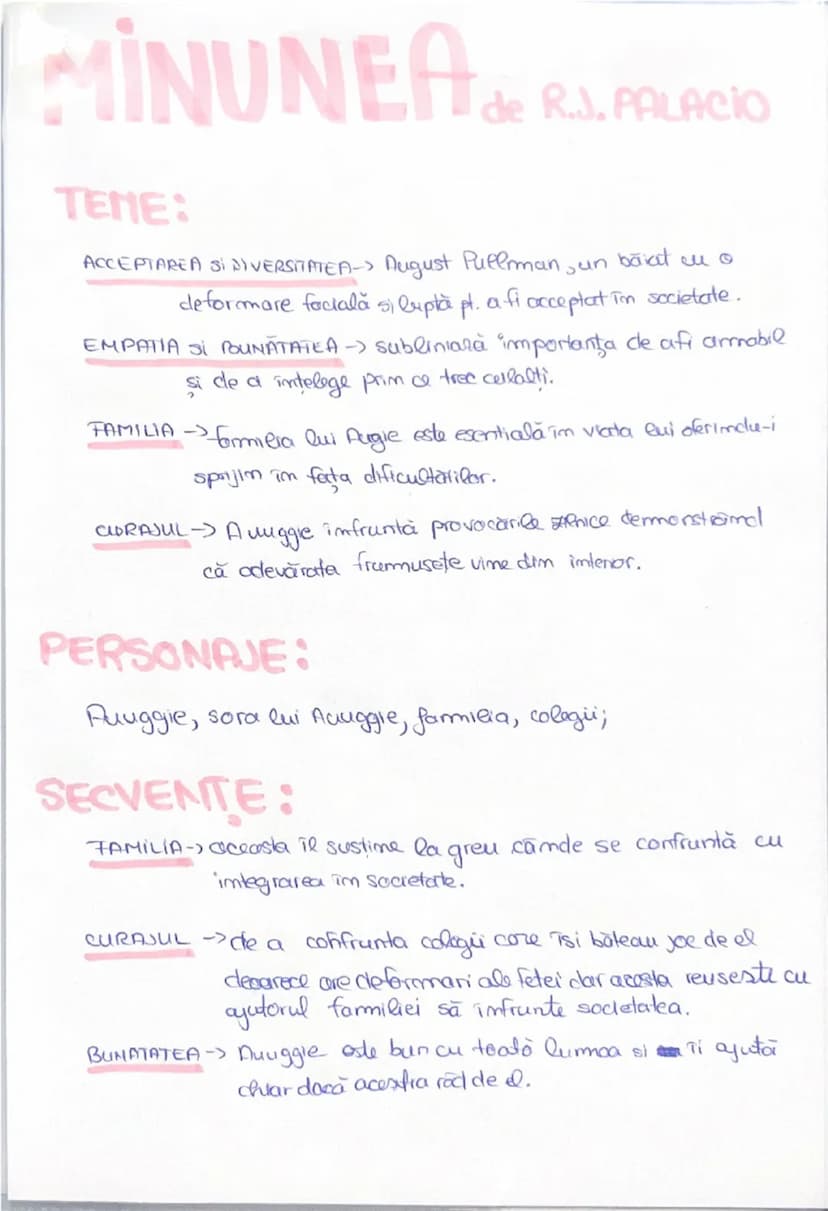 MINUNEA de R.J. PALACIO
TEME:
ACCEPTAREA SI DIVERSITATEA -> August Pullman, un băiat cu o
deformare facială și luptă pt. a fi acceptat în societate.
EMPATIA SI BUNĂTATEA -> subliniază importanța de a fi amabil
și de a înțelege prin ce trec ceilalți.
FAMILIA -> familia lui Augie este esentială în viata lui oferindu-i
sprijin în fața dificultatilor.
CURAJUL -> Auuggie înfruntă provocările zilnice demonstrând
că adevărata frumusete vine din interior.
PERSONAJE:
Auuggie, sora lui Auuggie, familia, colegii;
SECVENȚE:
FAMILIA -> aceasta îl sustine la greu cânde se confruntă cu
integrarea în societate.
CURAJUL -> de a confrunta colegii care îsi băteau joc de el
deoarece are deformari ale fetei dar acesta reuseste cu
ajutorul familiei să înfrunte societatea.
BUNATATEA -> Auuggie este bun cu toată lumea si îi ajută
chiar dacă acestia râd de el.